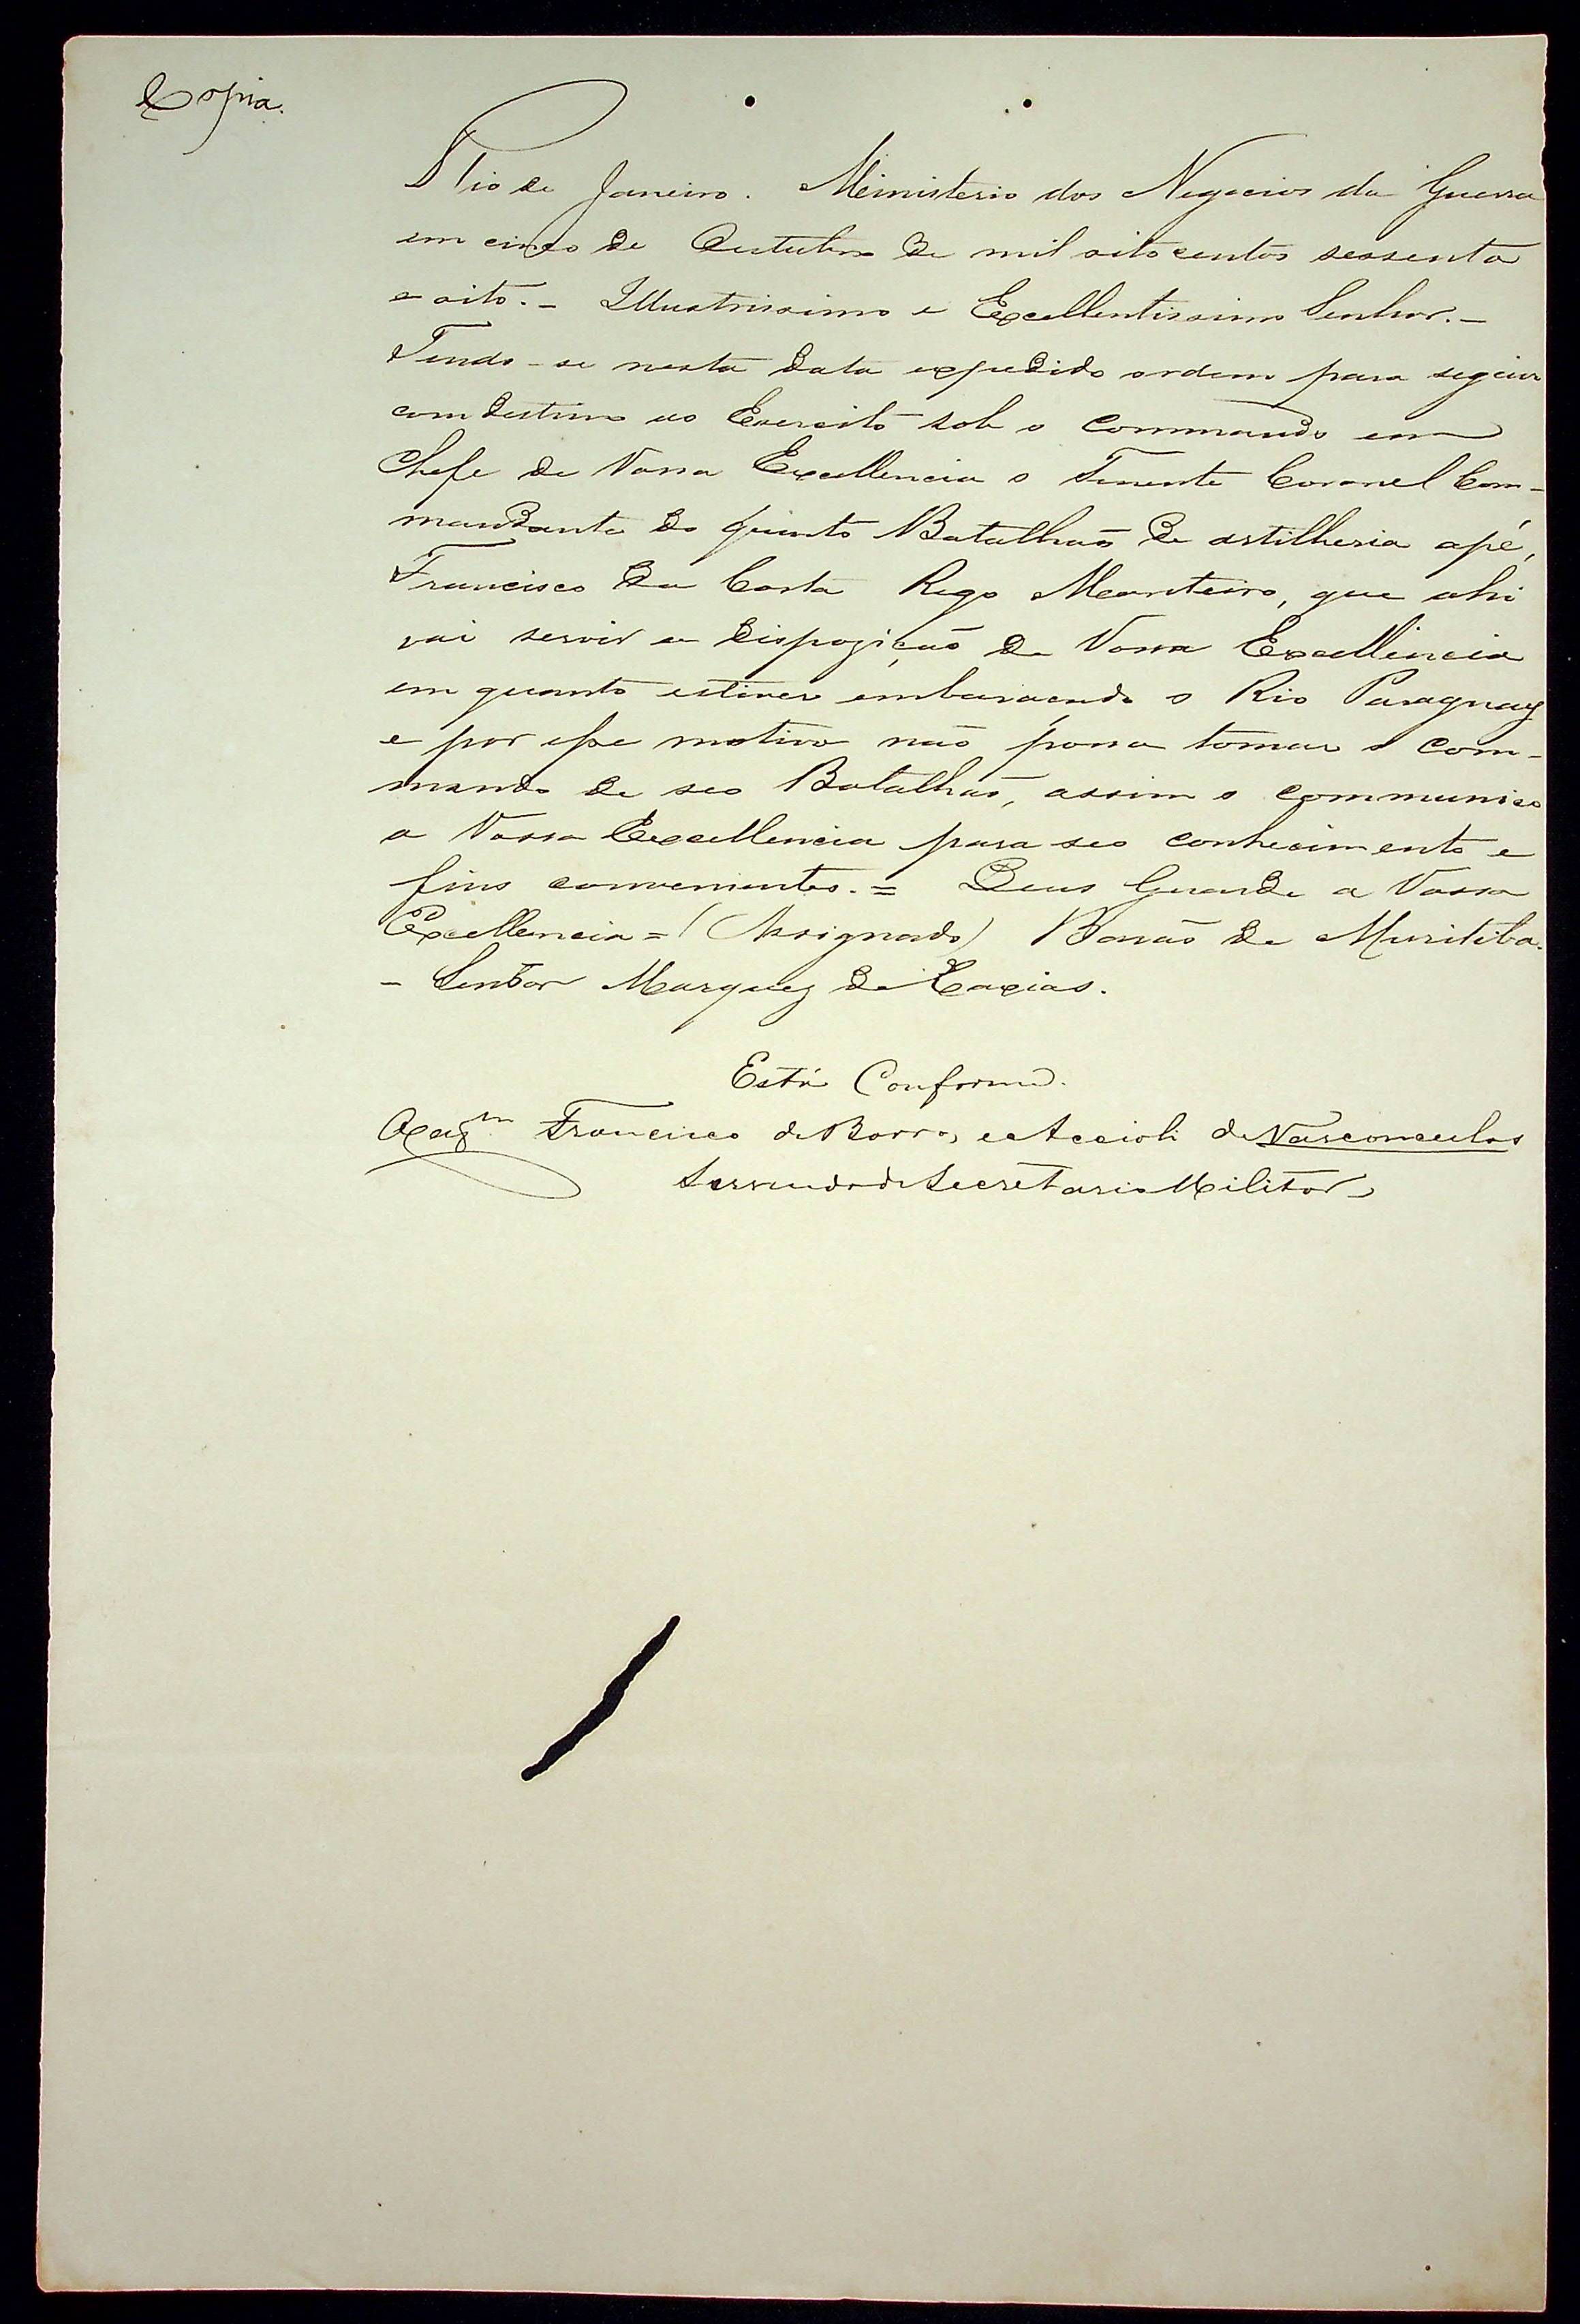 Copia.
Rio de Janeiro. Ministerio dos Negocios da Guerra
em cinco de Outubro de mil oito centos sessenta
e oito. - Illustrissimo e Excellentissimo Senhor. -
Tendo-se nesta data expedido ordem para seguir
com destino ao Exercito sob o commando em
Chefe de Vossa Excellencia o Tenente Coronel Com-
mandante do quinto Batalhaõ de artilheria apé,
Francisco da Costa Rego Monteiro, que ahi
vai servir a dispoziçaõ de Vossa Excellencia
em quanto estiver embaraçado o Rio Paraguay
e por esse motivo naõ possa tomar o com-
mando de seo Batalhaõ, assim o communico
a Vossa Excellencia para seo conhecimento e
fins convenientes. = Deus Guarde a Vossa
Excellencia = (Assignado) Baraõ de Muritiba.
- Senhor Marquez de Caxias.
Está Conforme.
Francisco de Barros e Accioli de Vasconcellos
Servindo de Secretario Militar